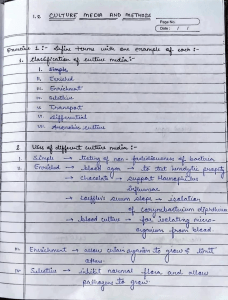 1.2. CULTURE MEDIA AND METHODS
Page No.
Date: / /
Exercise 1:- define terms with one example of each :-
1. Classification of culture media:-
I. Simple
II. Enriched
III. Enrichment
IV. Selective
V. Transport
VI. Differential
VII. Anaerobic culture
2. Uses of different culture media :-
I. Simple → testing of non-fastidiousness of bacteria
II. Enriched → blood agar → to test hemolytic property
→ chocolate → support Haemophilus
influenzae
→ Loeffler's serum slope → isolation
of corynebacterium diphtheriae
→ blood culture → for isolating micro-
organism from blood.
III. Enrichment → allow certain organism to grow & limit
others.
IV. Selective → inhibit normal flora and allow
pathogens to grow